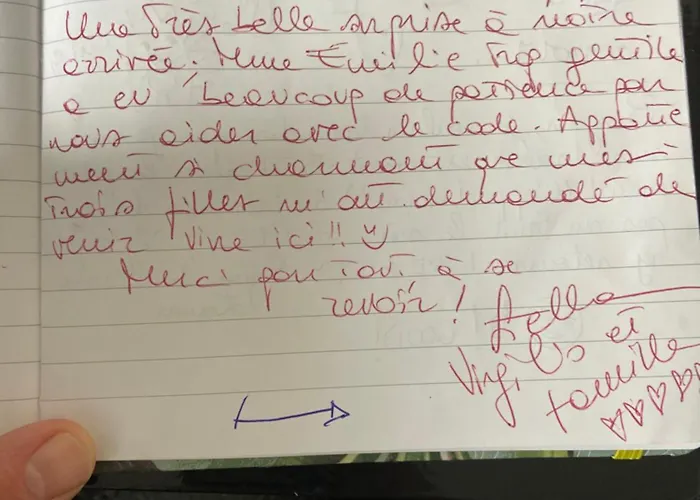 Une Très belle surprise à notre
arrivée. Mme Emilie trop gentile
a eu beaucoup de patience pour
nous aider avec le code. Appate
ment si charmant que mes
Trois filles m'ont demandé de
venir vivre ici!!
Merci pour tout à se
revoir!
et
famille